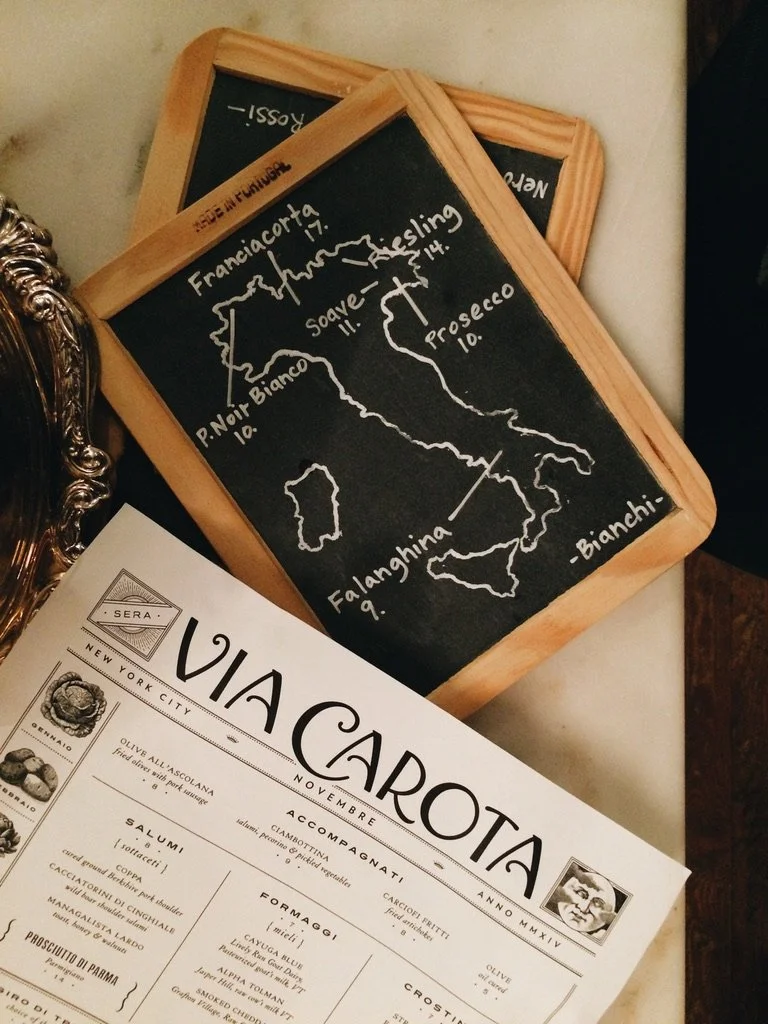 Rossi-
Nero
MADE IN PORTUGAL
Franciacorta
17.
Riesling
14.
Soave-
11.
Prosecco
10.
P. Noir Bianco
10.
Falanghina
9.
-Bianchi-
· SERA ·
VIA CAROTA
NEW YORK CITY
NOVEMBRE
ANNO MMXIV
GENNAIO
OLIVE ALL'ASCOLANA
fried olives with pork sausage
· 8 ·
ACCOMPAGNATI
CIAMBOTTINA
salumi, pecorino & pickled vegetables
· 9 ·
CARCIOFI FRITTI
fried artichokes
· 8 ·
OLIVE
oil cured
· 5 ·
SALUMI
· 8 ·
[sottaceti]
COPPA
cured ground Berkshire pork shoulder
CACCIATORINI DI CINGHIALE
wild boar shoulder salami
MANAGALISTA LARDO
toast, honey & walnuts
PROSCIUTTO DI PARMA
Parmigiano
· 14 ·
FORMAGGI
· 7 ·
[mieli]
CAYUGA BLUE
Lively Run Goat Dairy,
Pasteurized goat's milk, VT
ALPHA TOLMAN
Jasper Hill, raw cow's milk, VT
SMOKED
Grafton Village,